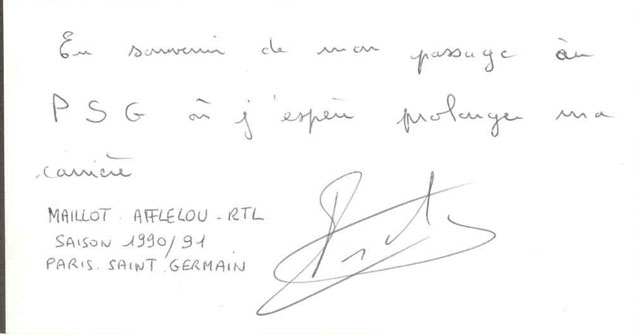 En souvenir de mon passage au
PSG où j'espère prolonger ma
carrière
MAILLOT. AFFLELOU-RTL
SAISON 1990/91
PARIS. SAINT. GERMAIN